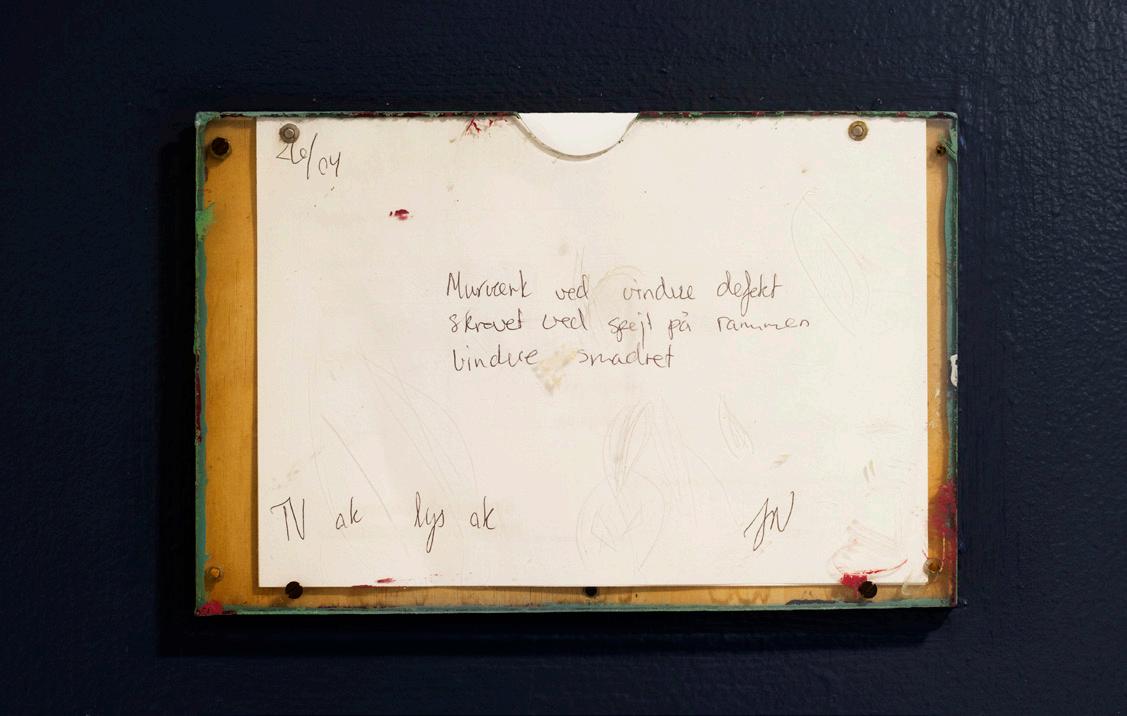 26/04
Murværk ved vindue defekt
skrevet ved spejl på rammen
Vindue smadret
TV ok lys ok
JN